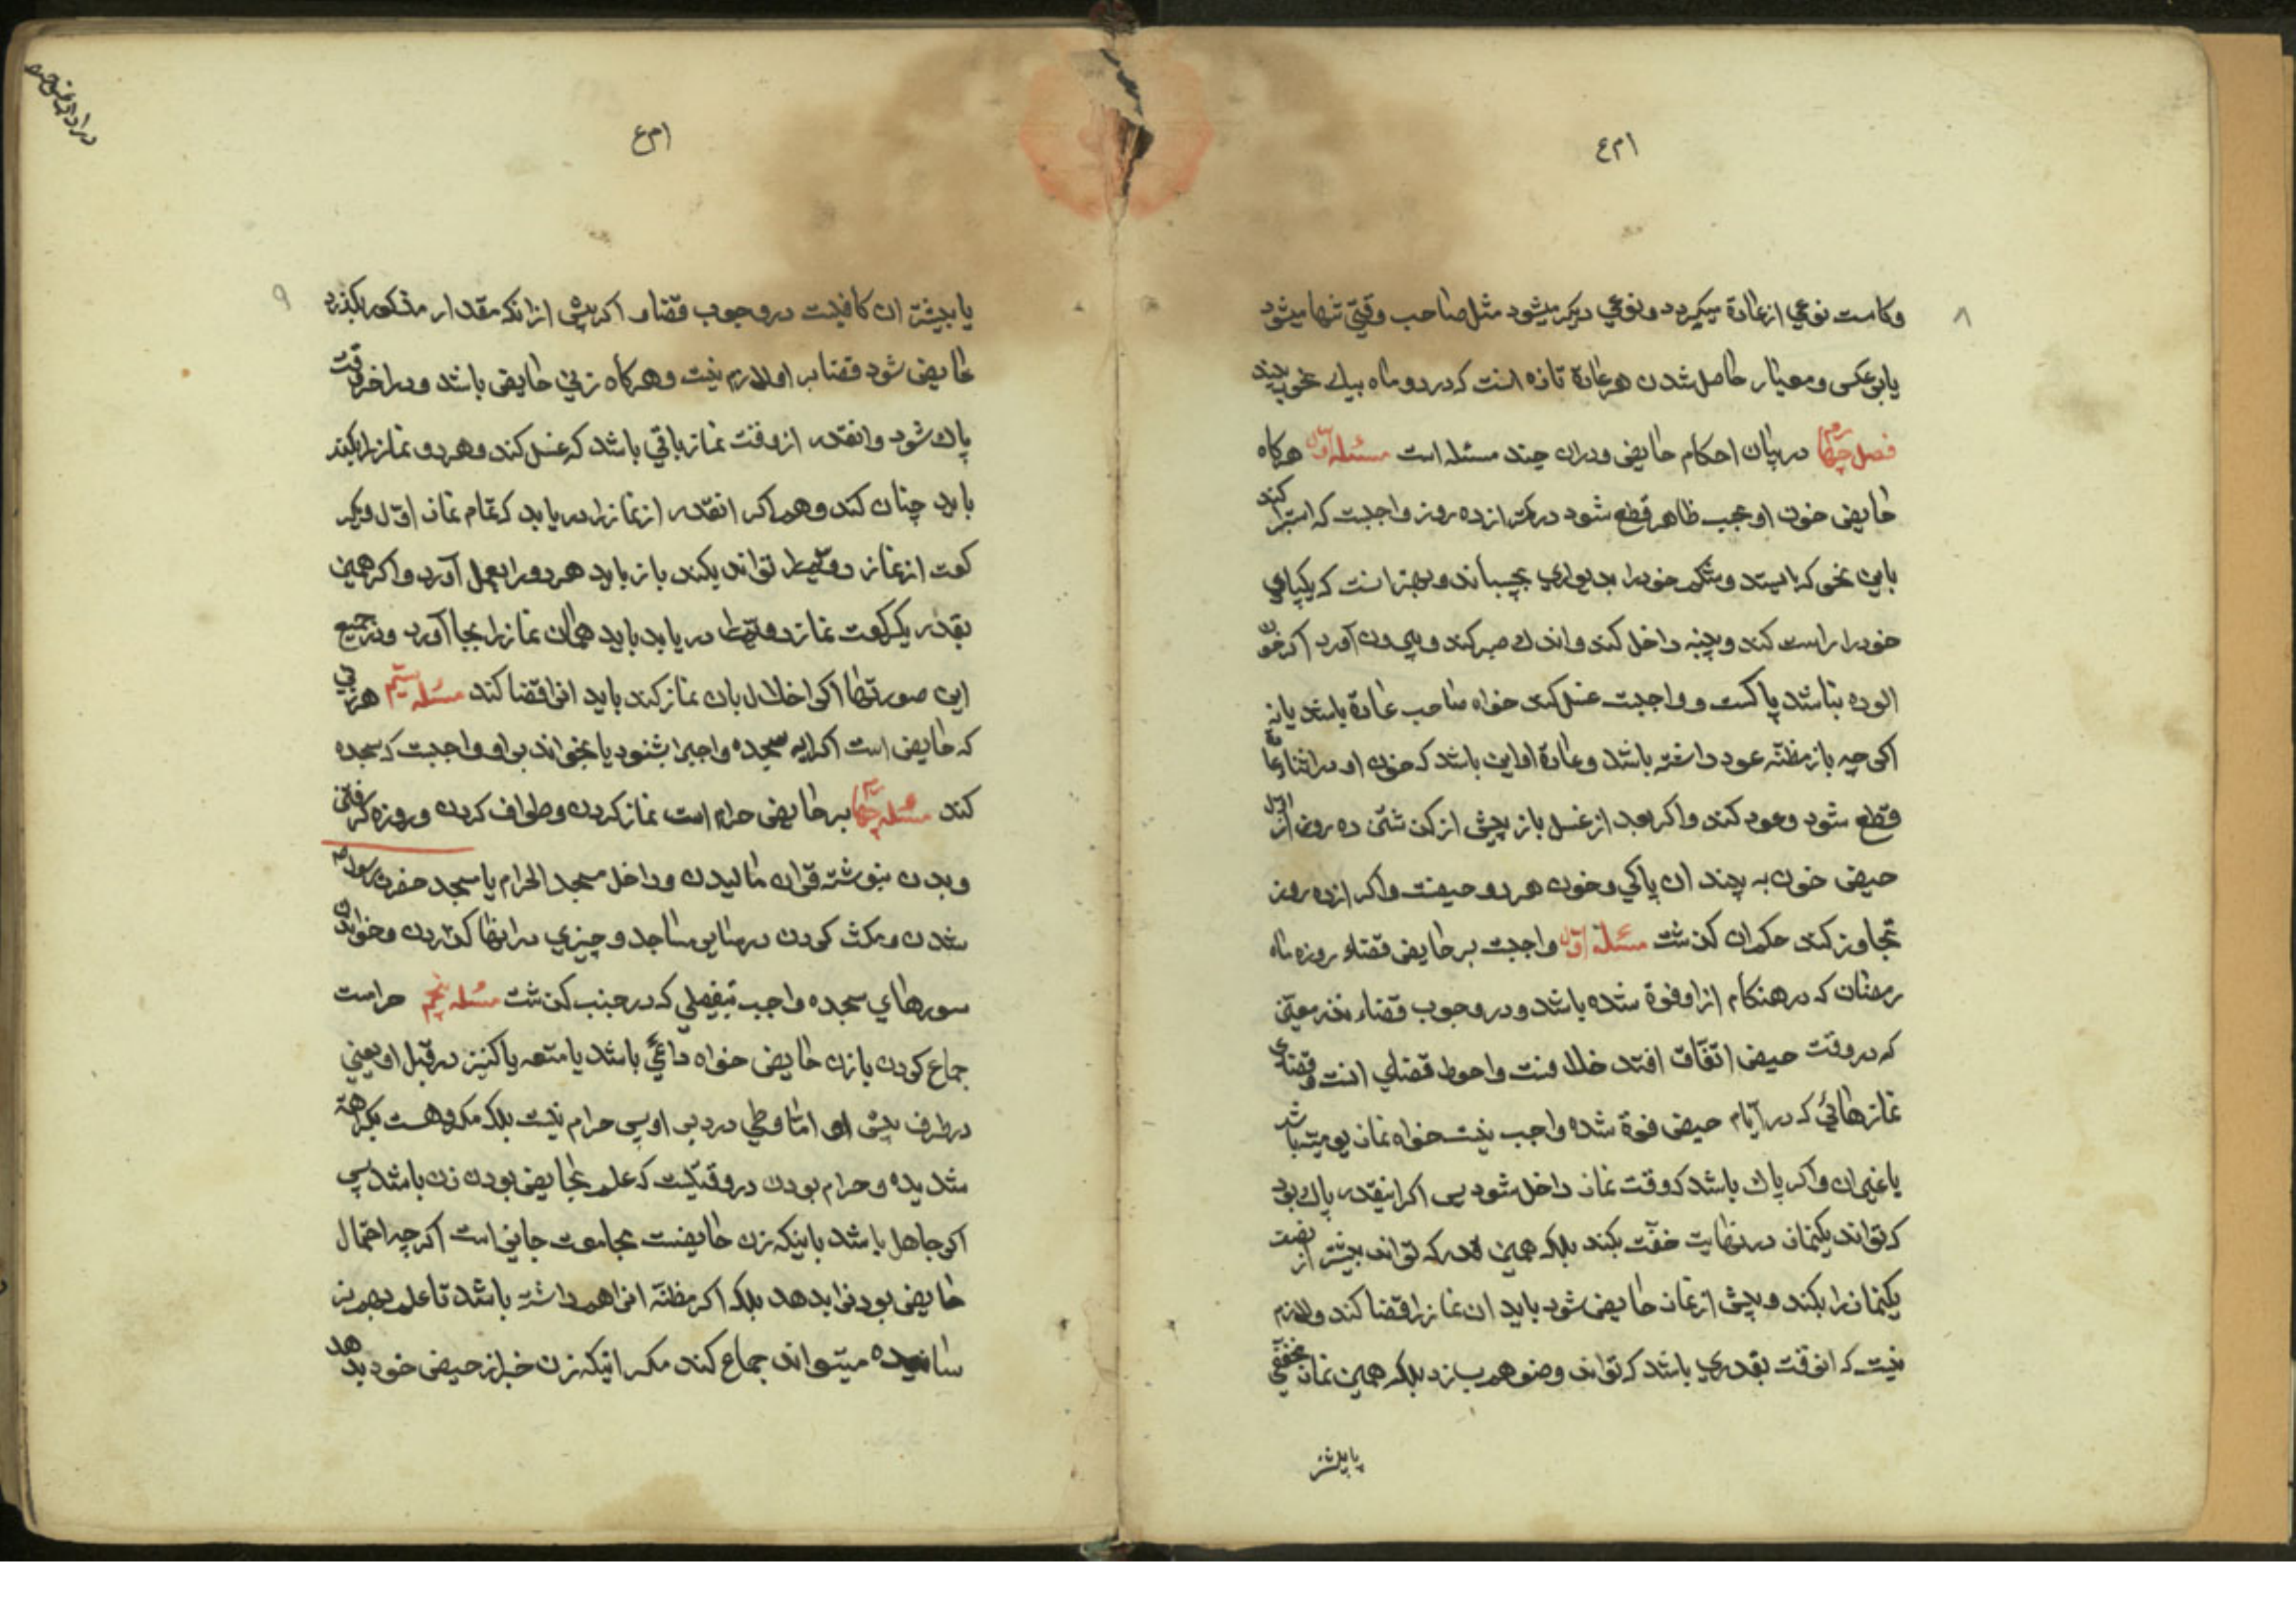 ام ع
۸
وکاست نوعي از عادة میکیرد و نوعي دیکر میشود مثل صاحب وقتي تنها میشود
یا بر عکس و معیار حاصل شدن هر عادة تازه انست که در دو ماه بیك نحو به بیند
فصل چهارم در بیان احکام حایض و دران چند مسئله است مسئله اول هرکاه
حایض خون او بحسب ظاهر قطع شود در کمتر از ده روز واجبست که استبرا کند
باین نحو که بایستد و شکم خود را بدیواري بچسباند و بهتر انست که یکپاي
خود را راست کند و پنبه داخل کند و اندك صبر کند و بیرون آورد اکر خون
الوده نباشد پاکست و واجبست غسل کند خواه صاحب عادة باشد یا نه
اکر چه باز مظنه عود داشته باشد و عادة او این باشد که خون او در اثناء عادة
قطع شود و عود کند و اکر بعد از غسل باز پیش از کذشتن ده روز از اول
حیض خون به بیند ان پاکي و خون هر دو حیضست و اکر از ده روز
تجاوز کند حکم ان کذشت مسئله واجبست بر حایض قضاء روزه ماه
رمضان که در هنکام از او فوة شده باشد و در وجوب قضاء نذر معین
که در وقت حیض اتفاق افتد خلافست و احوط قضاي انست و قضاي
نمازهائي که در ایام حیض فوة شده واجب نیست خواه نماز یومیه باشد
یا غیر ان و اکر پاك باشد که وقت نماز داخل شود پس اکر اینقدر پاك بود
که تواند یکنماز در نهایت خفت بکند بلکه همین قدر که تواند بیشتر از نصف
یکنماز را بکند و پیش از نماز حایض شود باید ان نماز را قضا کند و لازم
نیست که انوقت بقدري باشد که تواند وضو هم بسازد بلکه همین نماز مخففي
یا بیشتر
ام ع
۹
یا بیشتر ان کافیست در وجوب قضا و اکر پیش از انکه مقدار مذکور بکذرد
حایض شود قضا بر او لازم نیست و هرکاه زني حایض باشد و در اخر وقت
پاك شود و انقدر از وقت نماز باقي باشد که غسل کند و هر دو نماز را بکند
باید چنان کند و هم اکر انقدر از نماز را دریابد که تمام نماز اول و یکر
کعت از نماز دویم را تواند بکند باز باید هر دو را بعمل آورد و اکر همین
بقدر یکرکعت نماز دویم را دریابد باید همان نماز را بجا آورد و در جمیع
این صورتها اکر اخلال بان نماز کند باید انرا قضا کند مسئله سیم هر زني
که حایض است اکر ایه سجده واجبرا بشنود یا بخواند بر او واجبست که سجده
کند مسئله چهارم بر حایض حرام است نماز کردن و طواف کردن و روزه کرفتن
و بدن بنوشته قران مالیدن و داخل مسجد الحرام یا مسجد حضرت رسول ص
شدن و مکث کردن در سایر مساجد و چیزي در انها کذاردن و خواندن
سورهاي سجده واجب بتفصیلي که در جنب کذشت مسئله پنجم حرامست
جماع کردن با زن حایض خواه دائمي باشد یا متعه یا کنیز در قبل او یعني
در طرف پیش او اما وطي در دبر او پس حرام نیست بلکه مکروهست بکراهة
شدیده و حرام بودن در وقتیکست که علم بحایض بودن زن باشد پس
اکر جاهل باشد باینکه زن حایضست مجامعت جایز است اکر چه احتمال
حایض بودنرا بدهد بلکه اکر مظنه انرا هم داشته باشد تا علم بهم نر
سانیده میتواند جماع کند مکر اینکه زن خبر از حیض خود بدهد